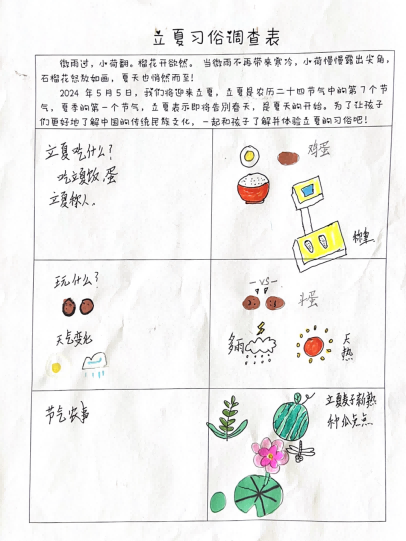 立夏习俗调查表
微雨过，小荷翻。榴花开欲然。当微雨不再带来寒冷，小荷慢慢露出尖角，
石榴花怒放如画，夏天也悄然而至！
2024年5月5日，我们将迎来立夏，立夏是农历二十四节气中的第7个节
气，夏季的第一个节气，立夏表示即将告别春天，是夏天的开始。为了让孩子
们更好地了解中国的传统民族文化，一起和孩子了解并体验立夏的习俗吧！
立夏吃什么？
吃立夏饭，蛋
立夏称人。
鸡蛋
称重
玩什么？
天气变化
-VS-
斗蛋
多雨
天
热
节气农事
立夏麦子
种瓜点点